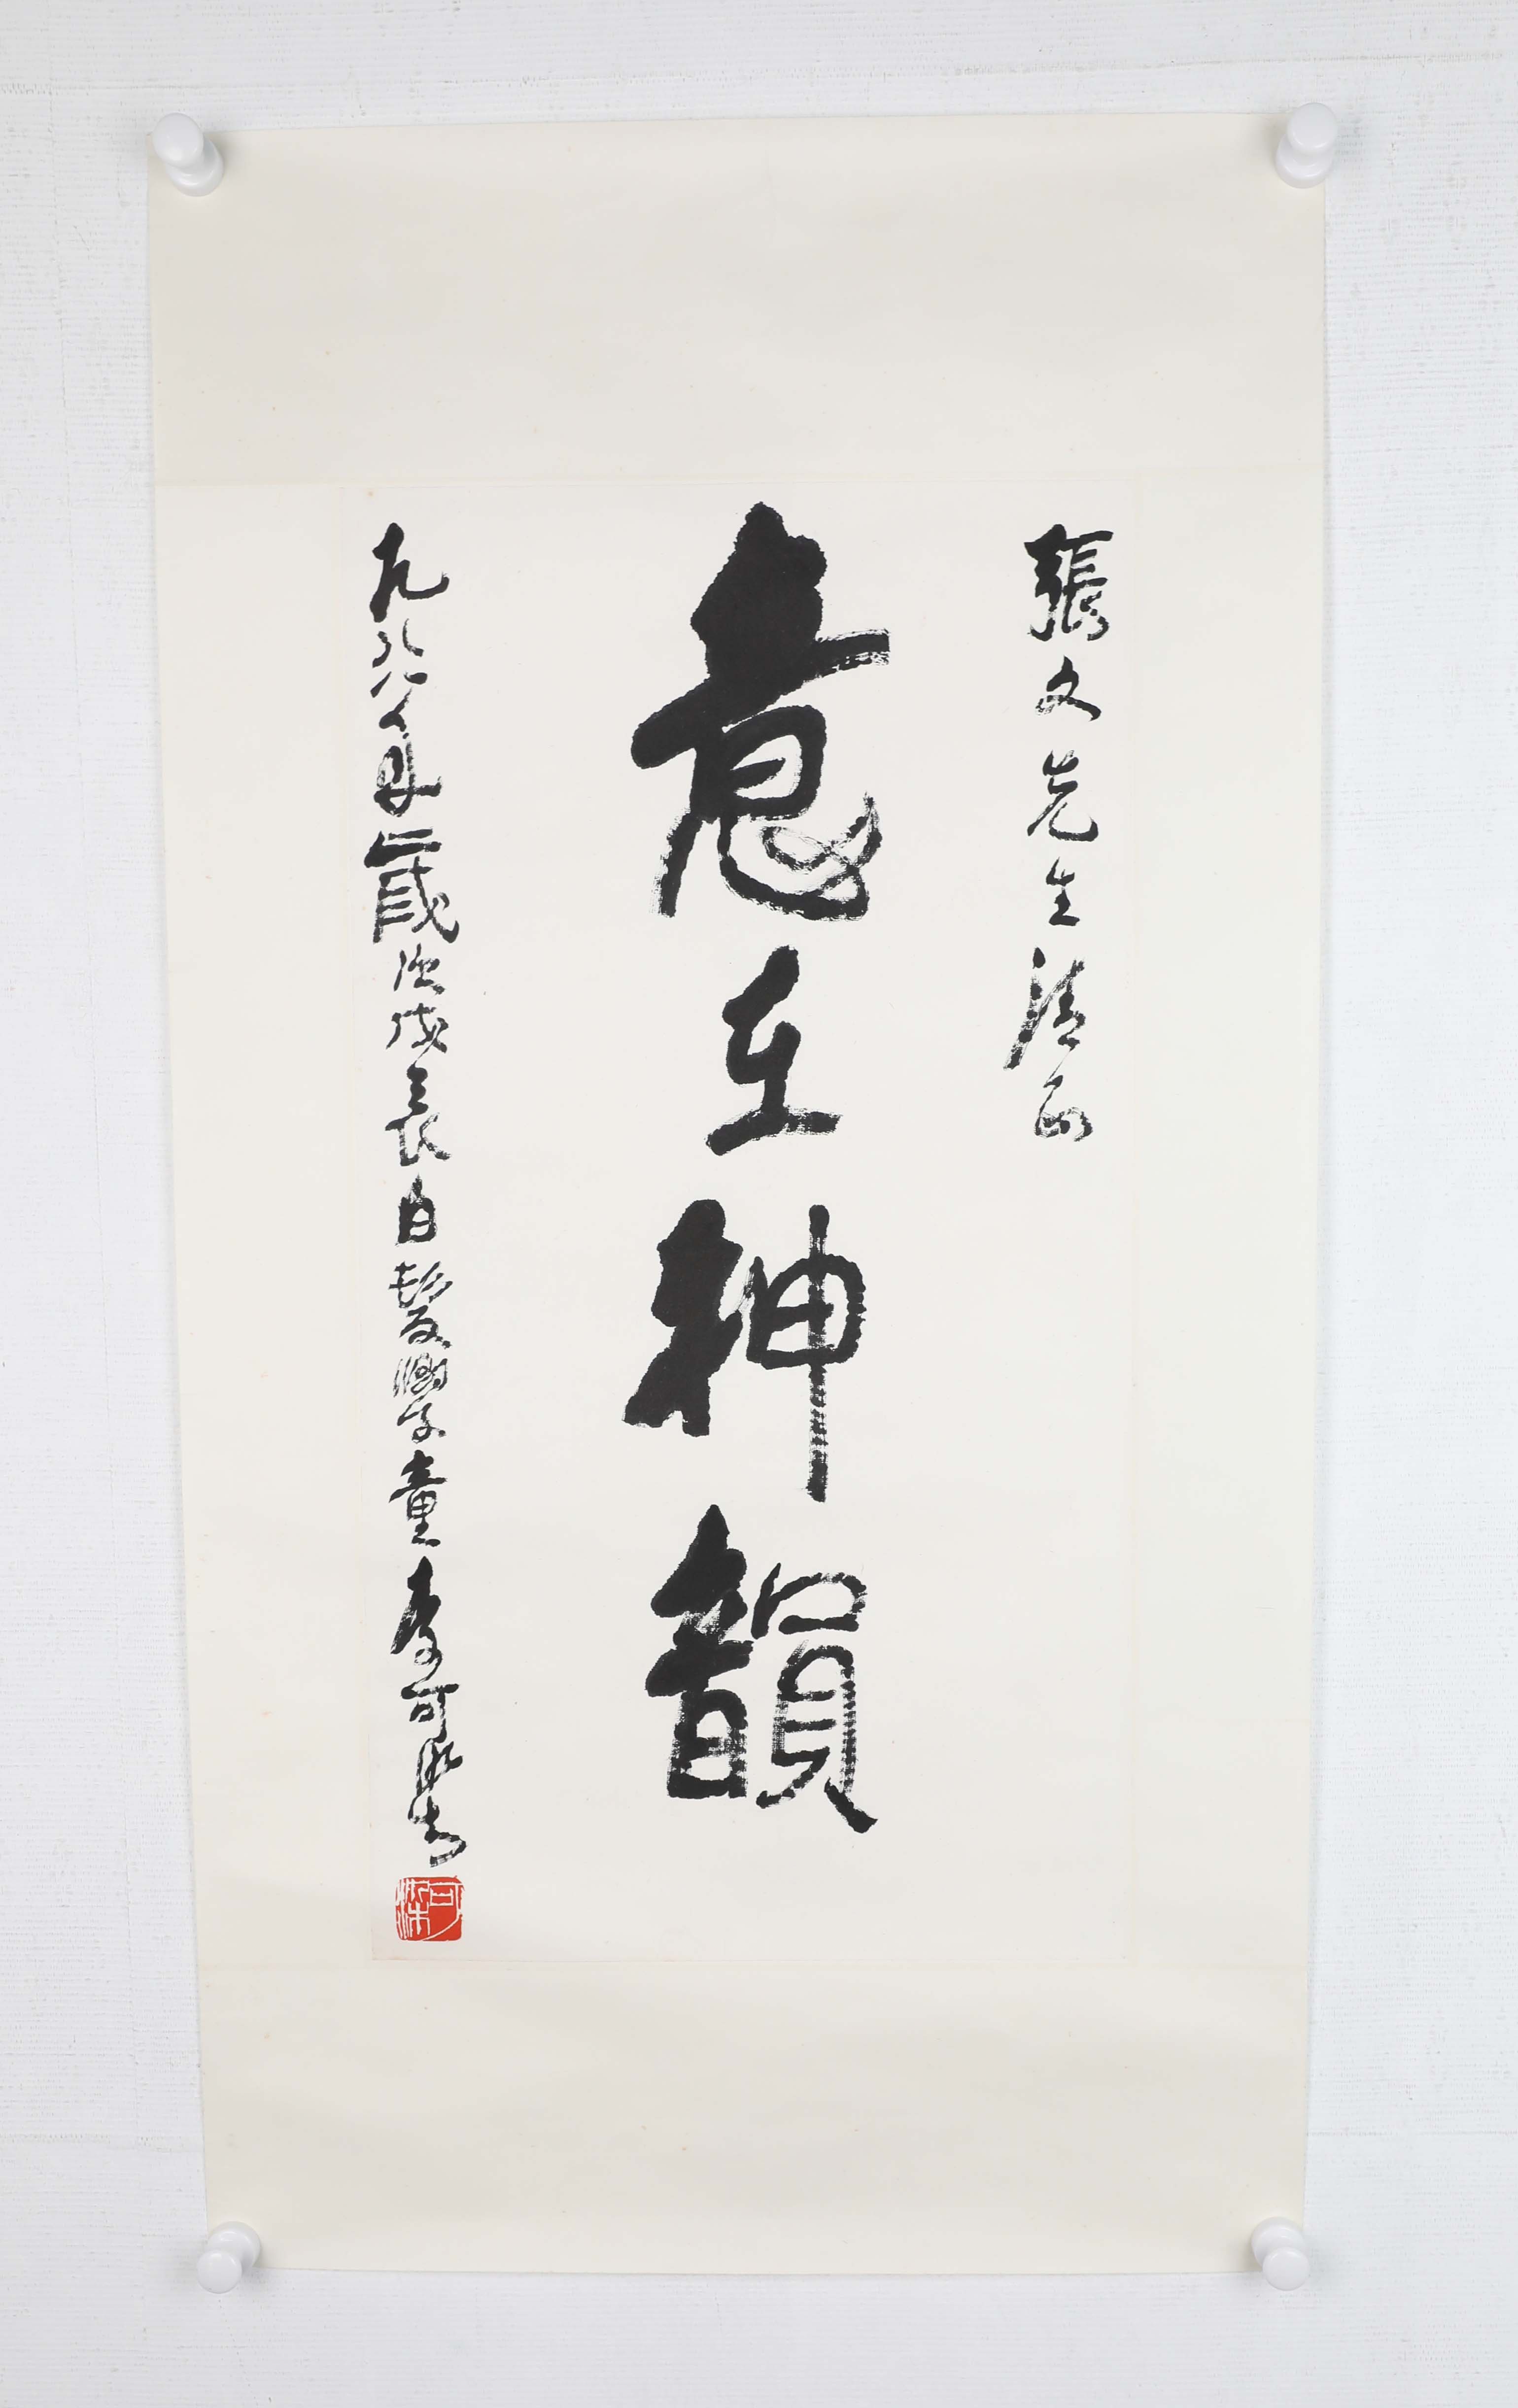 張文先生清正
意在神韻
九八八年歲次戊辰白髮學童李可染書
可染